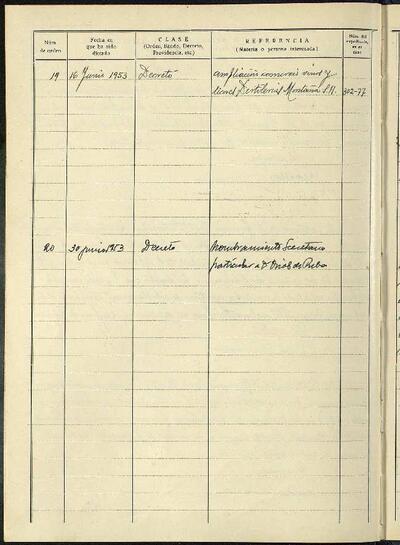 Núm. de orden
Fecha en que ha sido dictado
CLASE
(Orden, Bando, Decreto, Providencia, etc.)
REFERENCIA
(Materia o persona interesada)
Núm. del expediente, en su caso
19 16 Junio 1953 Decreto ampliación comercio vinos y
licores Destilerias Montaña S.A. 302-77
20 30 junio 1953 Decreto Nombramiento Secretario
particular a D.